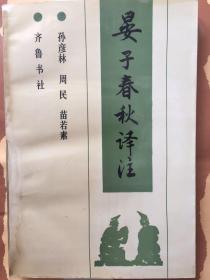 晏子春秋译注
孙彦林 周民 苗若素
齐鲁书社